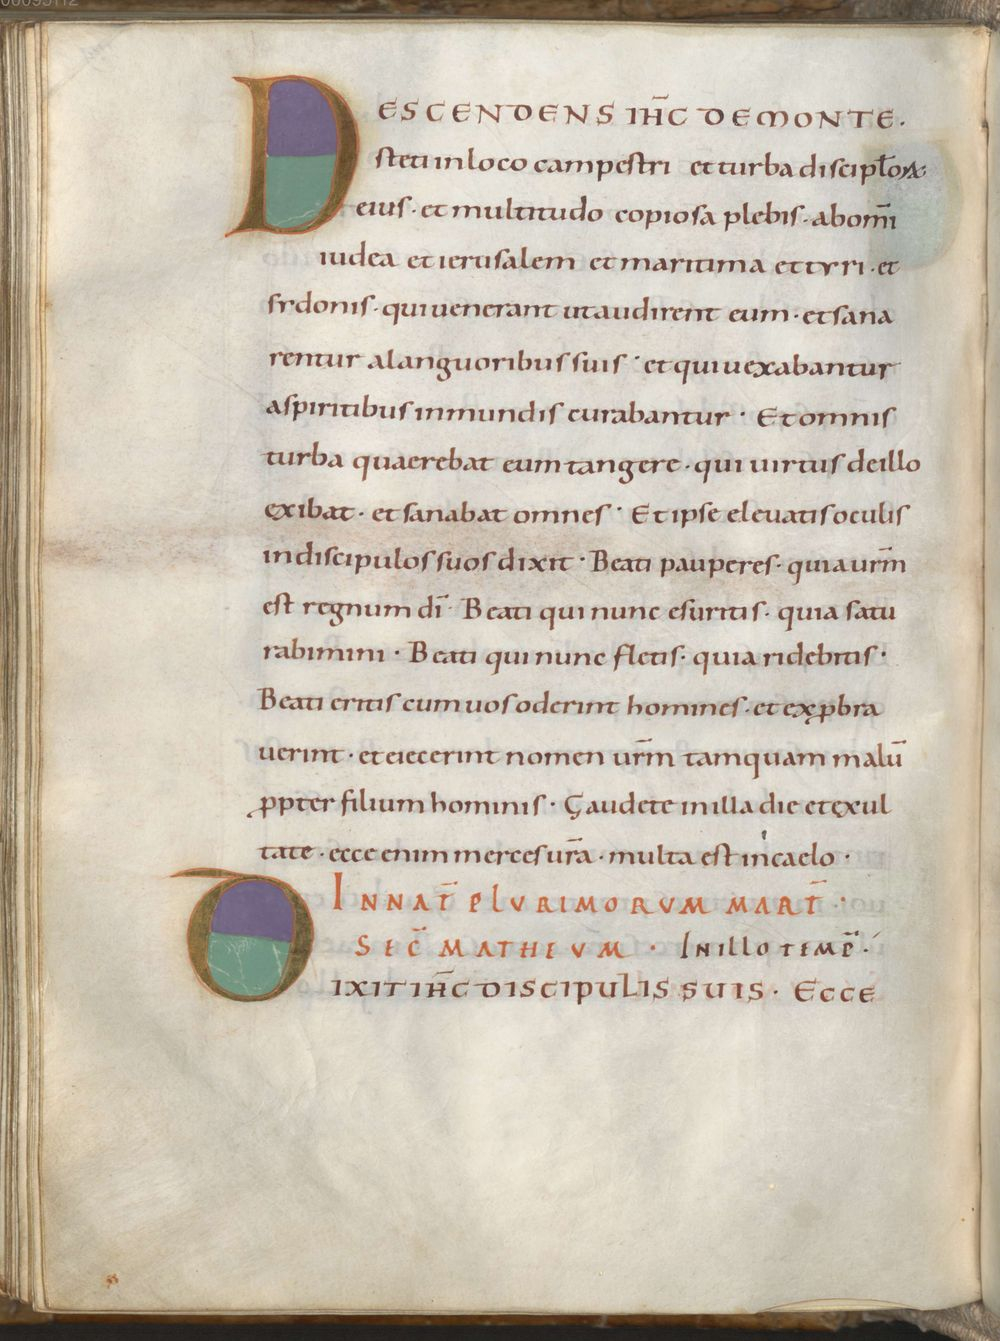 DESCENDENS IHC̄ DE MONTE.
steti in loco campestri et turba disciplorꝝ
eius · et multitudo copiosa plebis · ab om̄i
iudea et ierusalem et maritima et tyri · et
sydonis · qui uenerant ut audirent eum · et sana
rentur a languoribus suis · et qui uexabantur
a spiritibus inmundis curabantur · Et omnis
turba quaerebat eum tangere · qui uirtus de illo
exibat · et sanabat omnes · Et ipse eleuatis oculis
in discipulos suos dixit · Beati pauperes · quia urm̄
est regnum dī · Beati qui nunc esuritis · quia satu
rabimini · Beati qui nunc fletis · quia ridebitis ·
Beati eritis cum uos oderint homines · et exꝓbra
uerint · et eiecerint nomen urm̄ tamquam malū
ꝓpter filium hominis · Gaudete in illa die et exul
tate · ecce enim merces ura̅ · multa est in caelo ·
IN NAT̄ PLVRIMORVM MART̄ ·
SEC̄ MATHEVM · IN ILLO TEMP̄ ·
DIXIT IHC̄ DISCIPULIS SUIS · ECCE